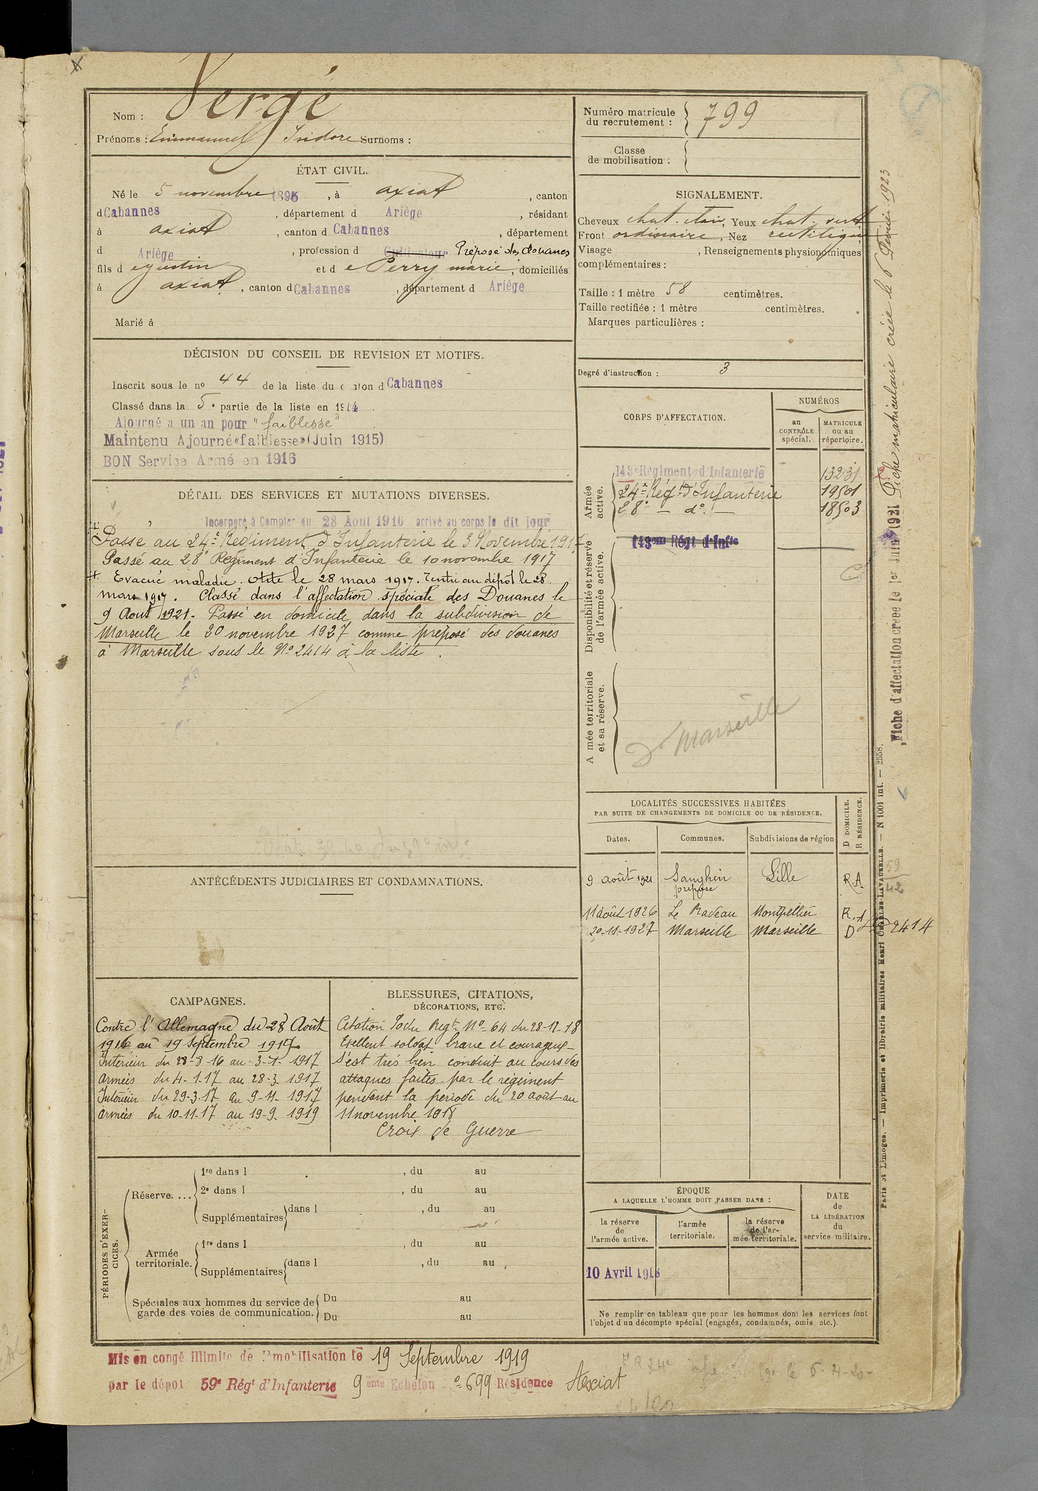 Nom : Vergé
Prénoms : Emmanuel Isidore Surnoms :
ÉTAT CIVIL.
Né le 5 novembre 1895, à axiat, canton
d Cabannes, département d Ariège, résidant
à axiat, canton d Cabannes, département
d Ariège, profession d Cultivateur Préposé des douanes
fils d et d e Perry marie, domiciliés
à axiat, canton d Cabannes, département d Ariège
Marié à
DÉCISION DU CONSEIL DE REVISION ET MOTIFS.
Inscrit sous le nº 44 de la liste du canton d Cabannes
Classé dans la 5e partie de la liste en 1914
Ajourné à un an pour "faiblesse"
Maintenu Ajourné «faiblesse» (Juin 1915)
BON Service Armé en 1916
DÉTAIL DES SERVICES ET MUTATIONS DIVERSES.
Incorporé à Compter du 28 Aout 1916 arrivé au corps le dit jour
Passé au 24e Régiment d'Infanterie le 3 Novembre 1917
Passé au 28e Régiment d'Infanterie le 10 novembre 1917
Evacué maladie. Otite le 28 mars 1917. Rentré au dépôt le 28
mars 1917. Classé dans l'affectation spéciale des Douanes le
9 Août 1921. Passé en domicile dans la subdivision de
Marseille le 30 novembre 1927 comme préposé des douanes
à Marseille sous le Nº 2414 à la liste.
ANTÉCÉDENTS JUDICIAIRES ET CONDAMNATIONS.
CAMPAGNES.
Contre l'Allemagne du 28 Août
1916 au 19 Septembre 1919
Intérieur du 28-8-16 au 3-1-1917
Armées du 4-1-17 au 28-3 1917
Intérieur du 29-3-17 au 9-11-1917
Armées du 10-11-17 au 19-9-1919
BLESSURES, CITATIONS,
DÉCORATIONS, ETC.
Citation du Regt Nº 64 du 28-11-18
Exellent soldat brave et courageux
S'est très bien conduit au cours des
attaques faites par le régiment
pendant la période du 20 août au
11 novembre 1918
Croix de Guerre
PÉRIODES D'EXERCICES.
Réserve....
1re dans l , du au
2e dans l , du au
Supplémentaires dans l , du au
Armée
territoriale.
1re dans l , du au
Supplémentaires dans l , du au
Spéciales aux hommes du service de
garde des voies de communication.
Du au
Du au
Mis en congé illimité de démobilisation le 19 Septembre 1919
par le dépôt 59e Régt d'Infanterie 9 eme Echelon nº 699 Résidence Axiat
Numéro matricule
du recrutement : 799
Classe
de mobilisation :
SIGNALEMENT.
Cheveux chat. clair, Yeux chat. vert
Front ordinaire, Nez rectiligne
Visage , Renseignements physionomiques
complémentaires :
Taille : 1 mètre 58 centimètres.
Taille rectifiée : 1 mètre centimètres.
Marques particulières :
Degré d'instruction : 3
CORPS D'AFFECTATION.
NUMÉROS
au
CONTRÔLE
spécial.
MATRICULE
ou au
répertoire.
Armée
active.
143e Régiment d'Infanterie 13231
24e Régt d'Infanterie 19501
28e — do — 18503
Disponibilité et réserve
de l'armée active.
143eme Régt d'Infie
Armée territoriale
et sa réserve.
Do Marseille
LOCALITÉS SUCCESSIVES HABITÉES
PAR SUITE DE CHANGEMENTS DE DOMICILE OU DE RÉSIDENCE.
Dates. Communes. Subdivisions de région D DOMICILE. R RÉSIDENCE.
9 août 1921 Sanghin Lille R.A.
préposé
11 août 1926 Le Radeau Montpellier R.A
30-11-1927 Marseille Marseille D 2414
ÉPOQUE
A LAQUELLE L'HOMME DOIT PASSER DANS :
la réserve
de
l'armée active.
l'armée
territoriale.
la réserve
de l'ar-
mée territoriale.
DATE
de
LA LIBÉRATION
du
service militaire.
10 Avril 1918
Ne remplir ce tableau que pour les hommes dont les services font
l'objet d'un décompte spécial (engagés, condamnés, omis, etc.).
Fiche matriculaire créée le 6 Février 1923
Fiche d'affectation créée le 1er Juin 1921
Paris et Limoges. — Imprimerie et librairie militaires Henri CHARLES-LAVAUZELLE. — N 1001 int. — 2558.
59
42